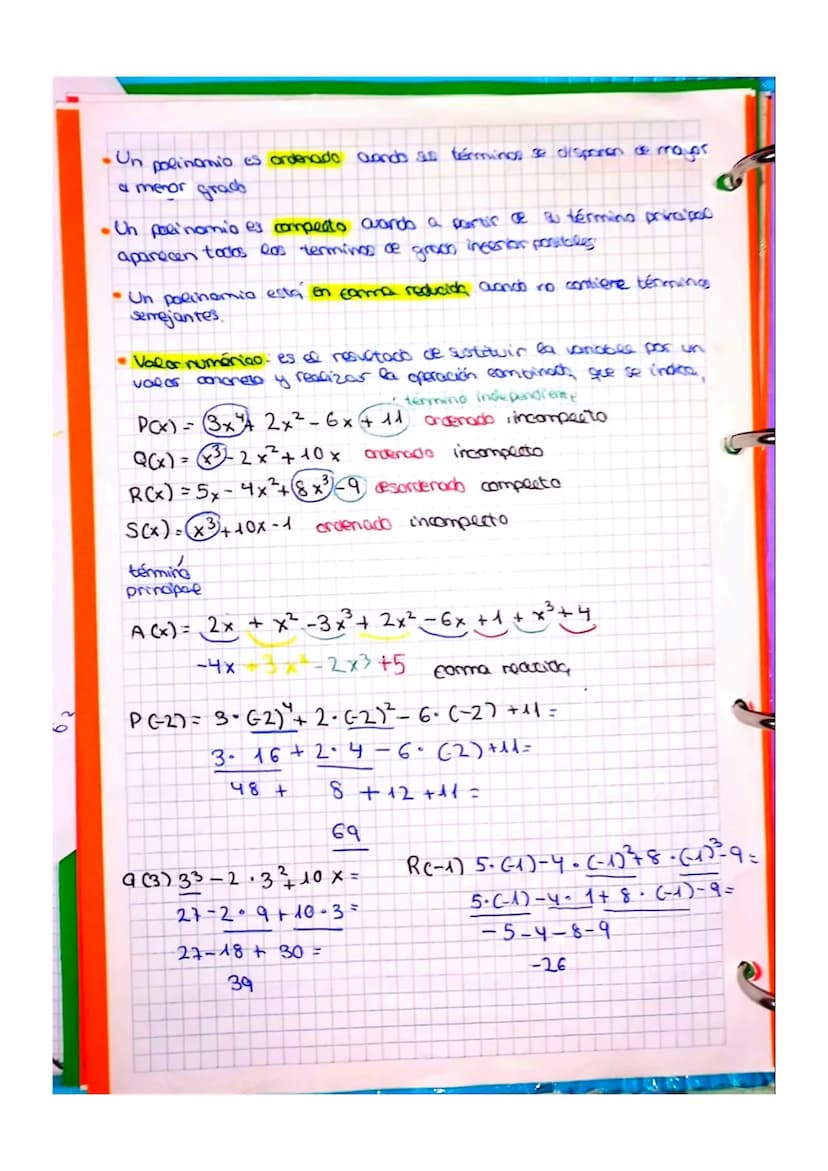 • Un polinomio es ordenado cuando sus términos se disponen de mayor
a menor grado
• Un polinomio es completo cuando a partir de su término principal
aparecen todos los terminos de grado inferior posibles
• Un polinomio está en forma reducida cuando no contiene términos
semejantes.
• Valor numérico: es el resultado de sustituir la variable por un
valor concreto y realizar la operación combinada, que se indica,
término independiente
P(x) = 3x⁴ + 2x² - 6x + 11 ordenado, incompleto
Q(x) = x³ - 2x² + 10x ordenado incompleto
R(x) = 5x - 4x² + 8x³ - 9 desordenado completo
S(x) = x³ + 10x - 1 ordenado incompleto
término
principal
A(x) = 2x + x² - 3x³ + 2x² - 6x + 1 + x³ + 4
-4x + 3x² - 2x³ + 5 forma reducida
P(-2) = 3·(-2)⁴ + 2·(-2)² - 6·(-2) + 11 =
3·16 + 2·4 - 6·(-2) + 11 =
48 + 8 + 12 + 11 =
69
Q(3) 3³ - 2·3² + 10x =
27 - 2·9 + 10·3 =
27 - 18 + 30 =
39
R(-1) 5·(-1) - 4·(-1)² + 8·(-1)³ - 9 =
5·(-1) - 4·1 + 8·(-1) - 9 =
-5 - 4 - 8 - 9
-26